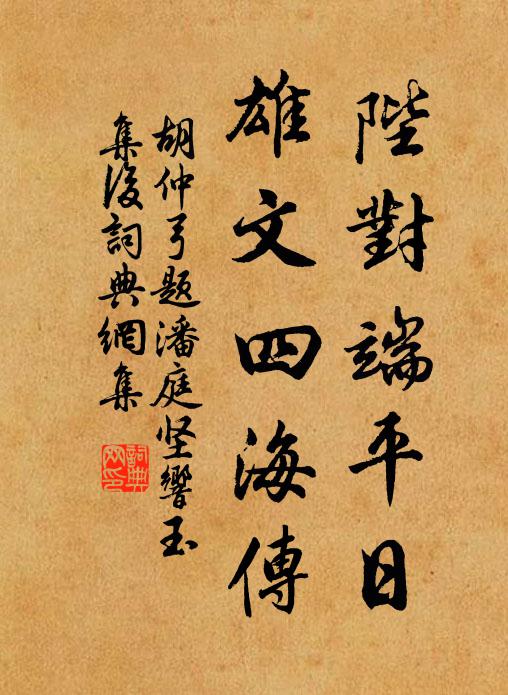 陛對端平日
雄文四海傳
胡仲弓題潘庭坚響玉
集後詞典網集
詞典
网印